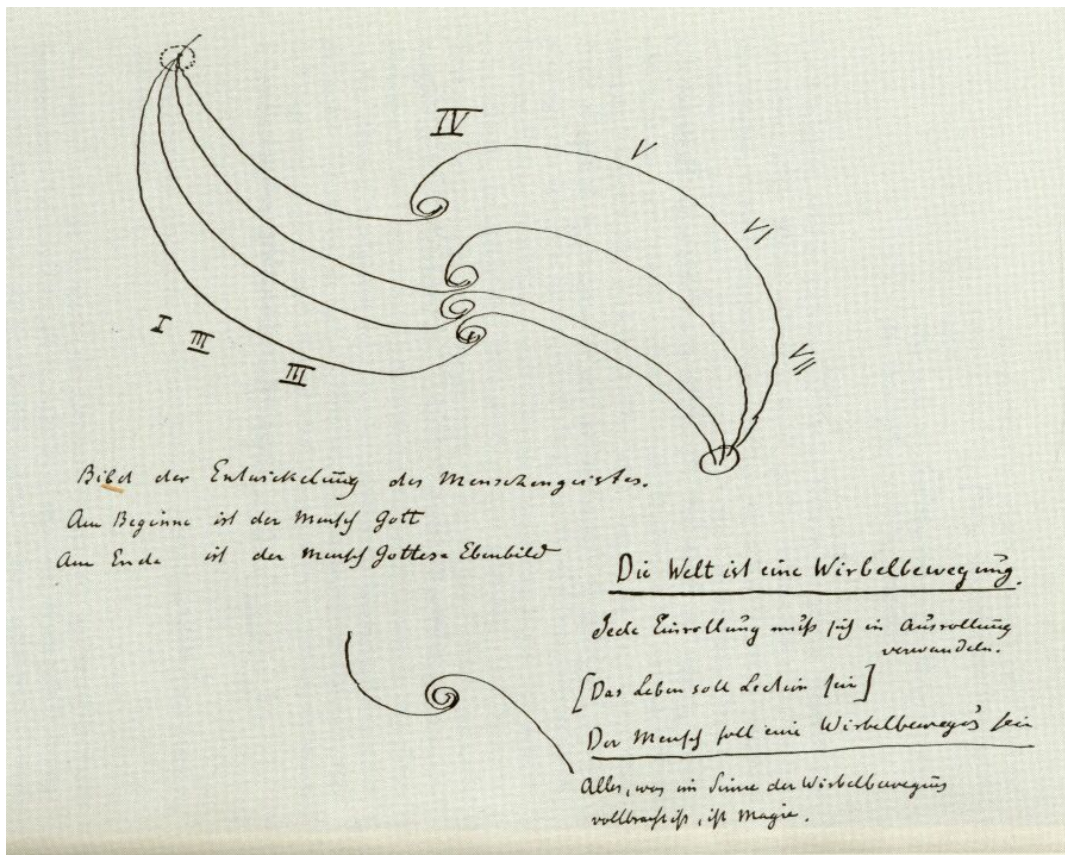 IV
V
VI
VII
I
III
III
Bild der Entwickelung des Menschengeistes.
Am Beginne ist der Mensch Gott
Am Ende ist der Mensch Gottes Ebenbild
Die Welt ist eine Wirbelbewegung.
Jede Einrollung muß sich in Ausrollung
verwandeln.
[Das Leben soll Lection sein]
Der Mensch soll eine Wirbelbewegg sein
Alles, was im Sinne der Wirbelbewegung
vollbracht ist, ist Magie.